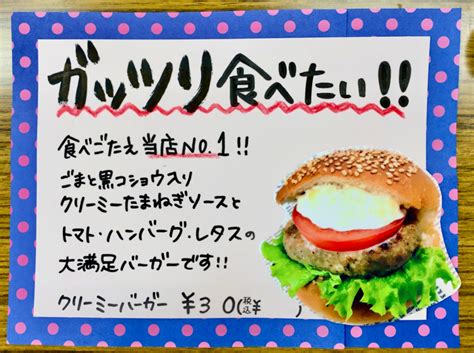 ガッツリ食べたい!!
食べごたえ当店NO.1!!
ごまと黒コショウ入り
クリーミーたまねぎソースと
トマト・ハンバーグ・レタスの
大満足バーガーです!!
クリーミーバーガー ¥30(税込¥ )